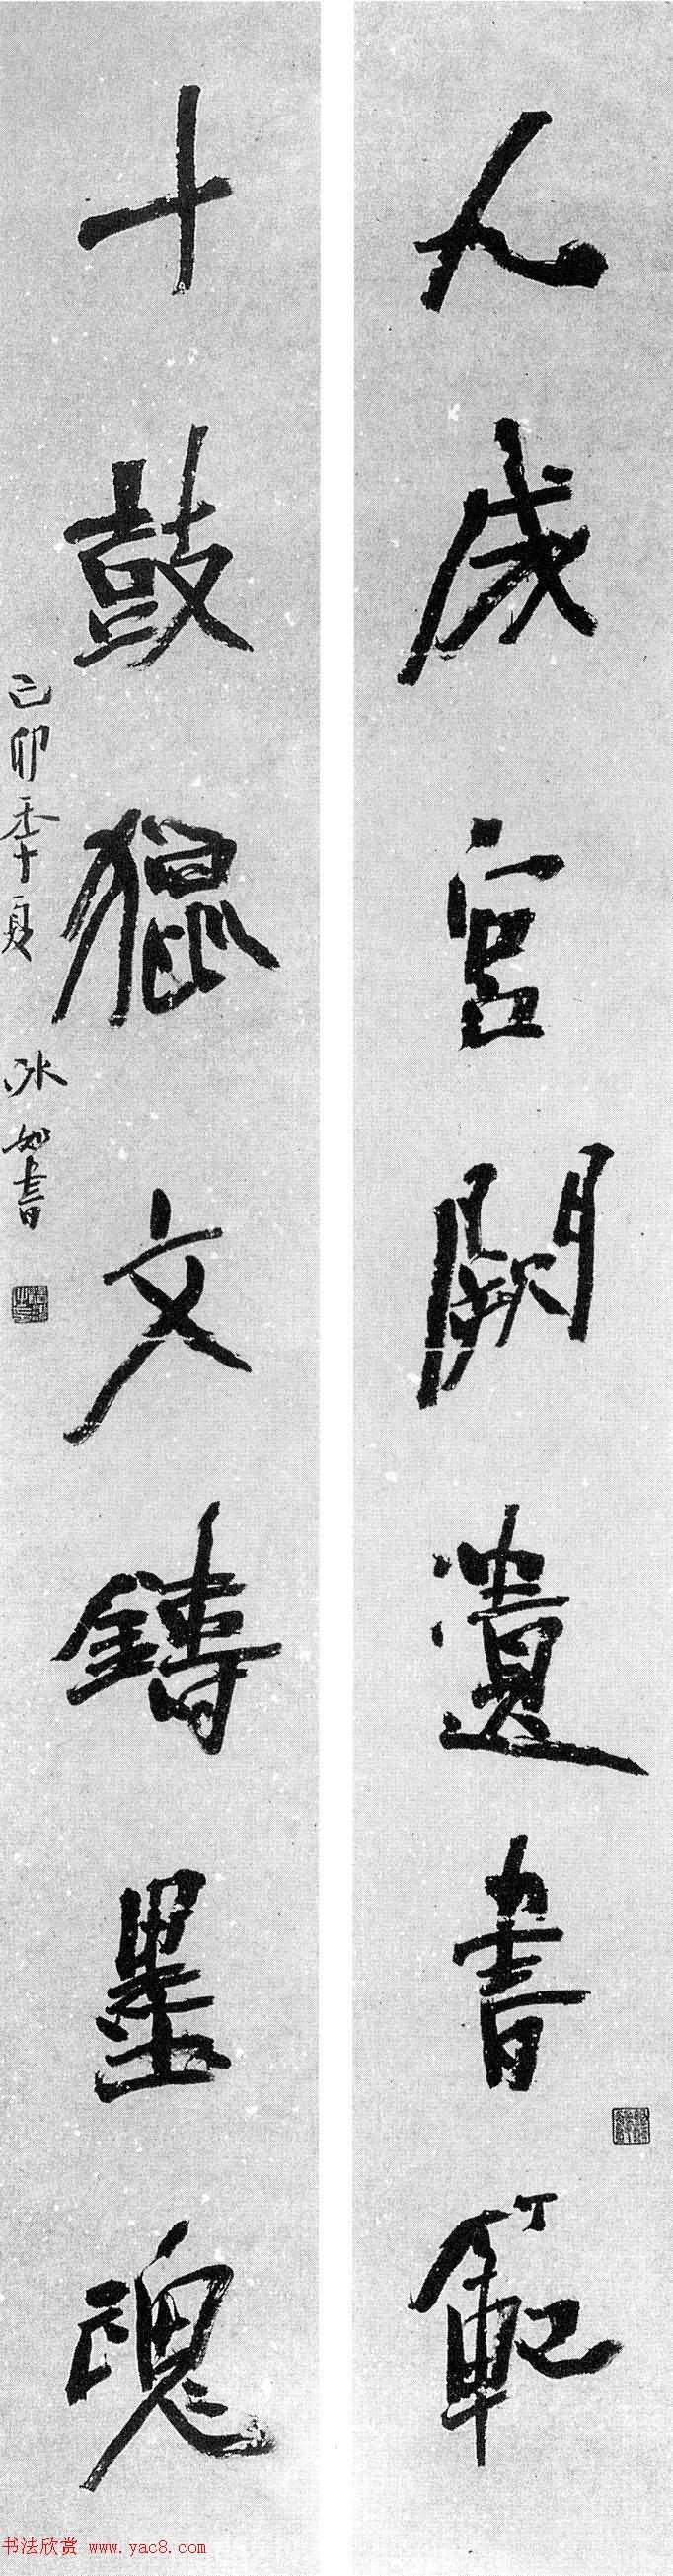 九成宮闕遺書範
十鼓獵文鑄墨魂
己卯秊夏 冰如書
书法欣赏 www.yac8.com